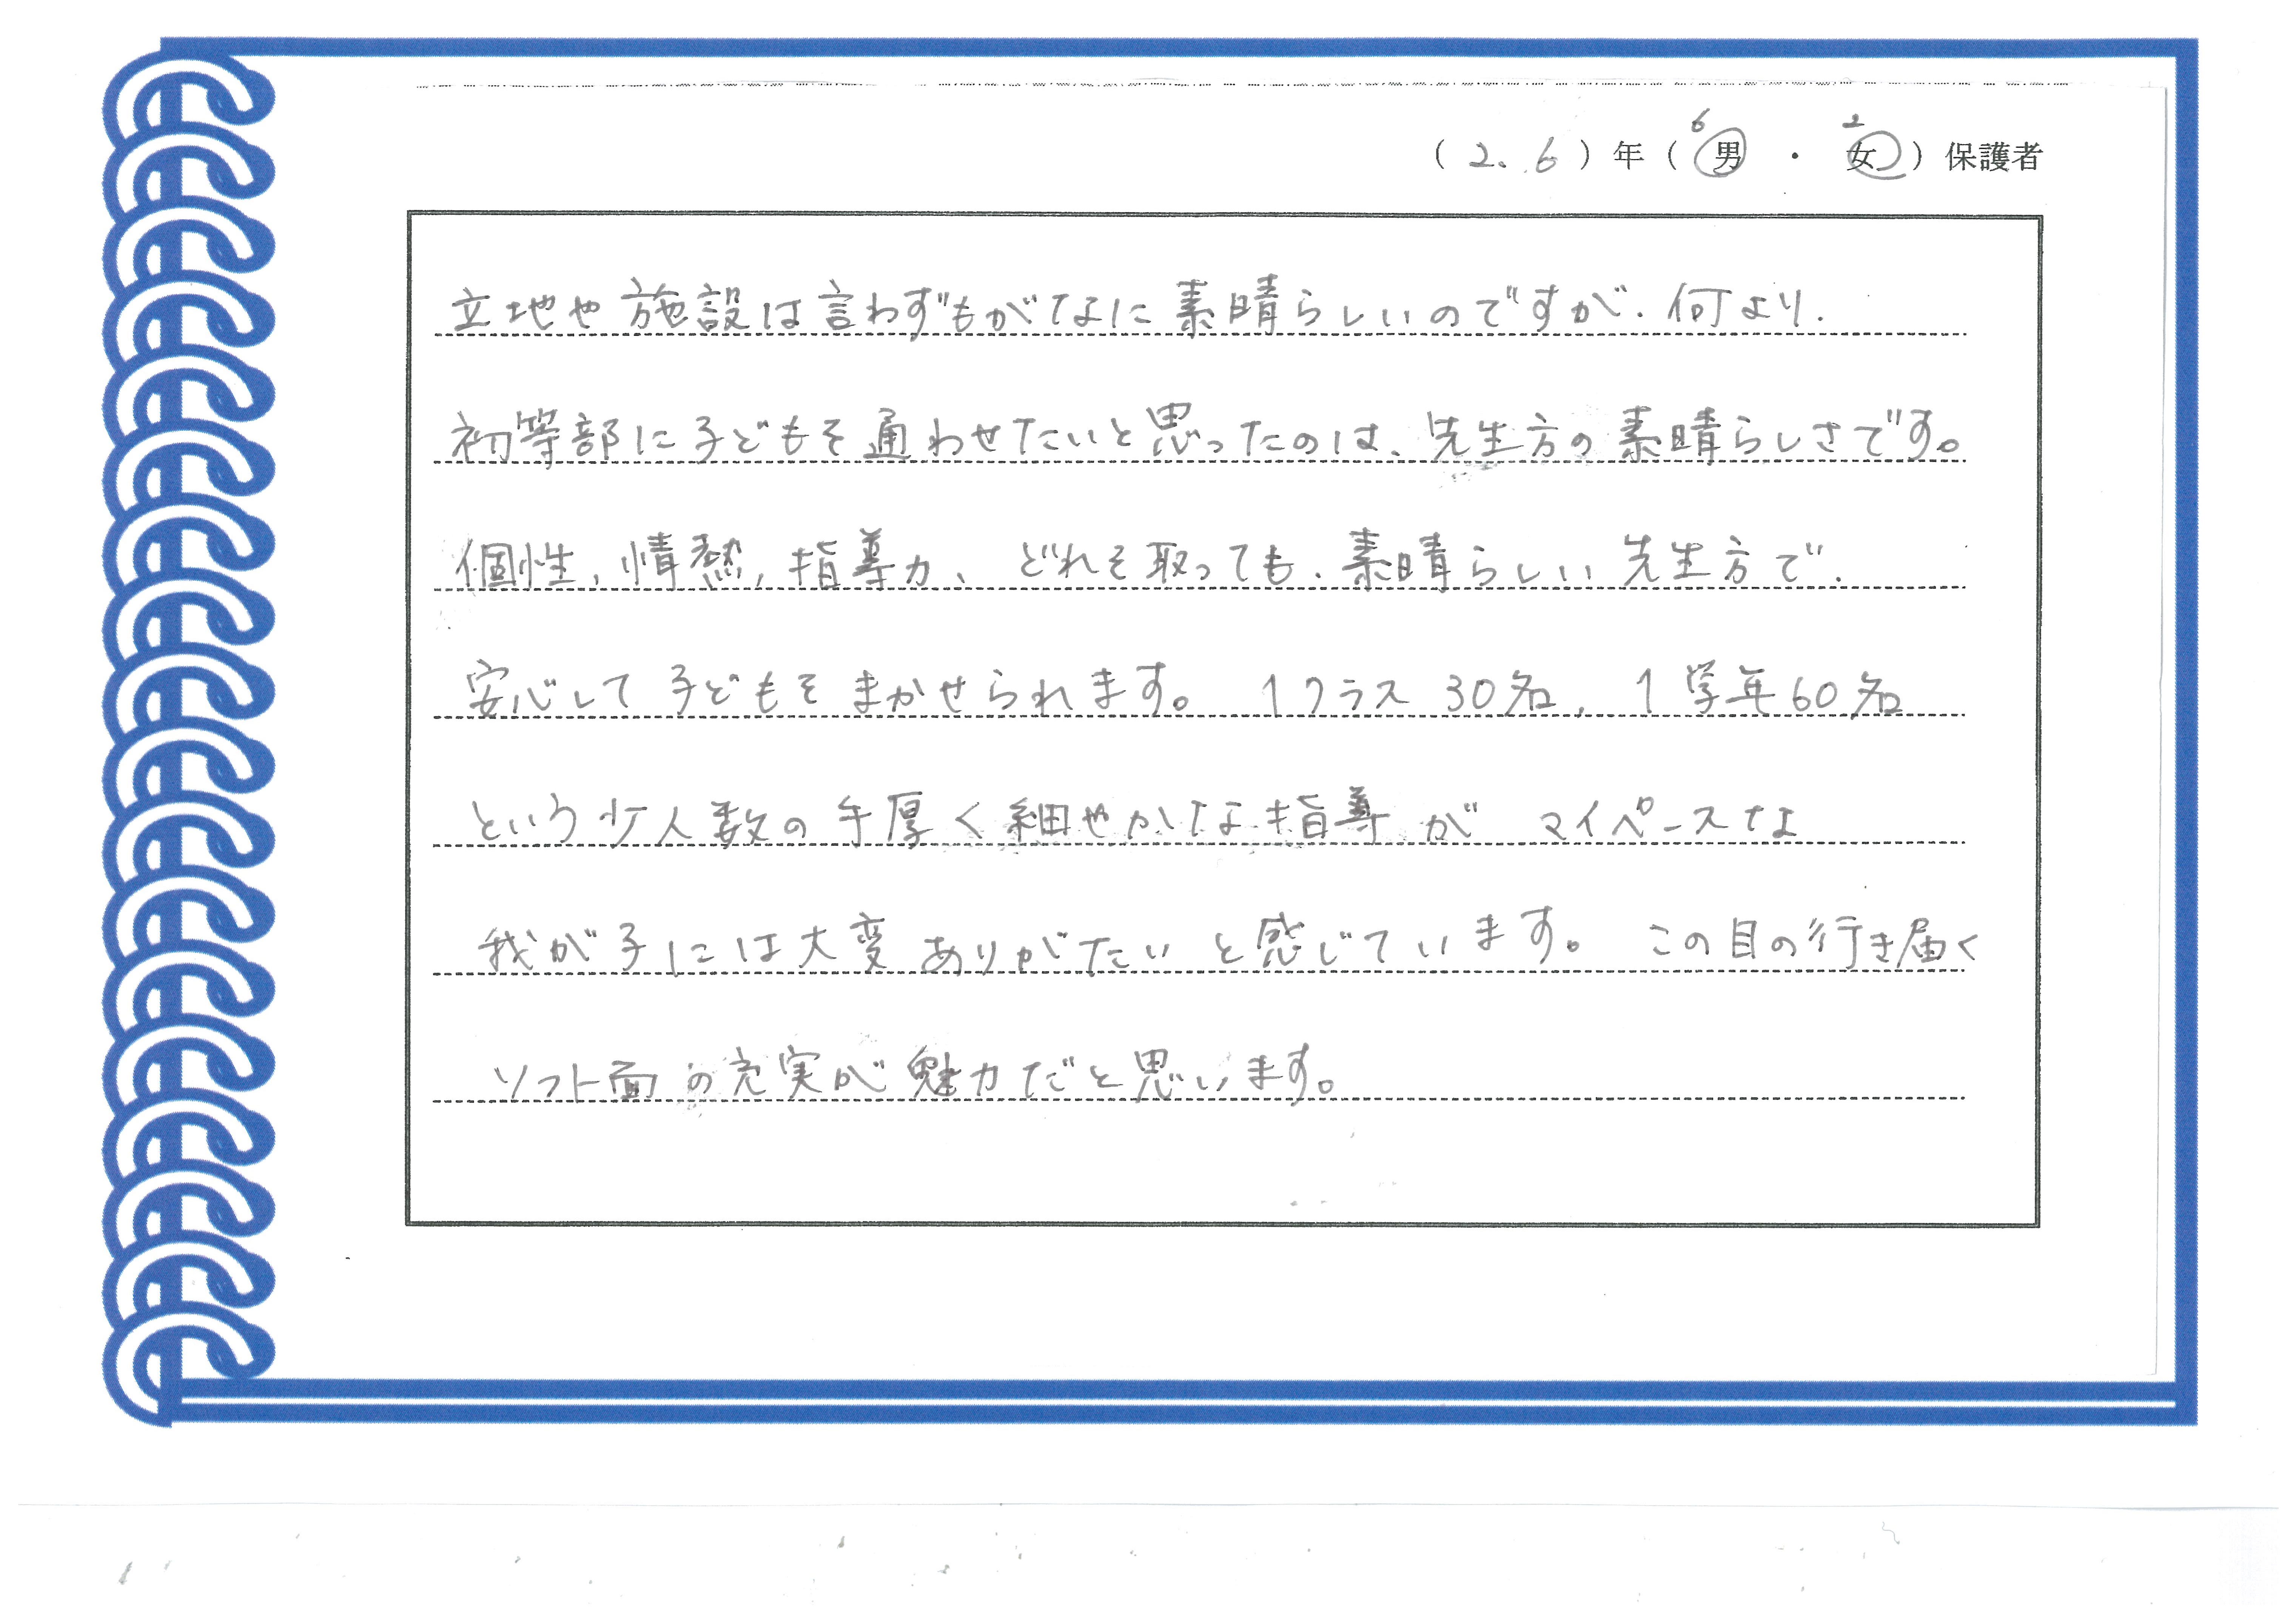 6 2
( 2. 6 ) 年 ( 男 ・ 女 ) 保護者
立地や施設は言わずもがなに素晴らしいのですが、何より、
初等部に子どもを通わせたいと思ったのは、先生方の素晴らしさです。
個性、情熱、指導力、どれを取っても、素晴らしい先生方で、
安心して子どもをまかせられます。 1クラス 30名、1学年60名
という少人数の手厚く細やかな指導が マイペースな
我が子には大変ありがたいと感じています。 この目の行き届く
ソフト面の充実が魅力だと思います。